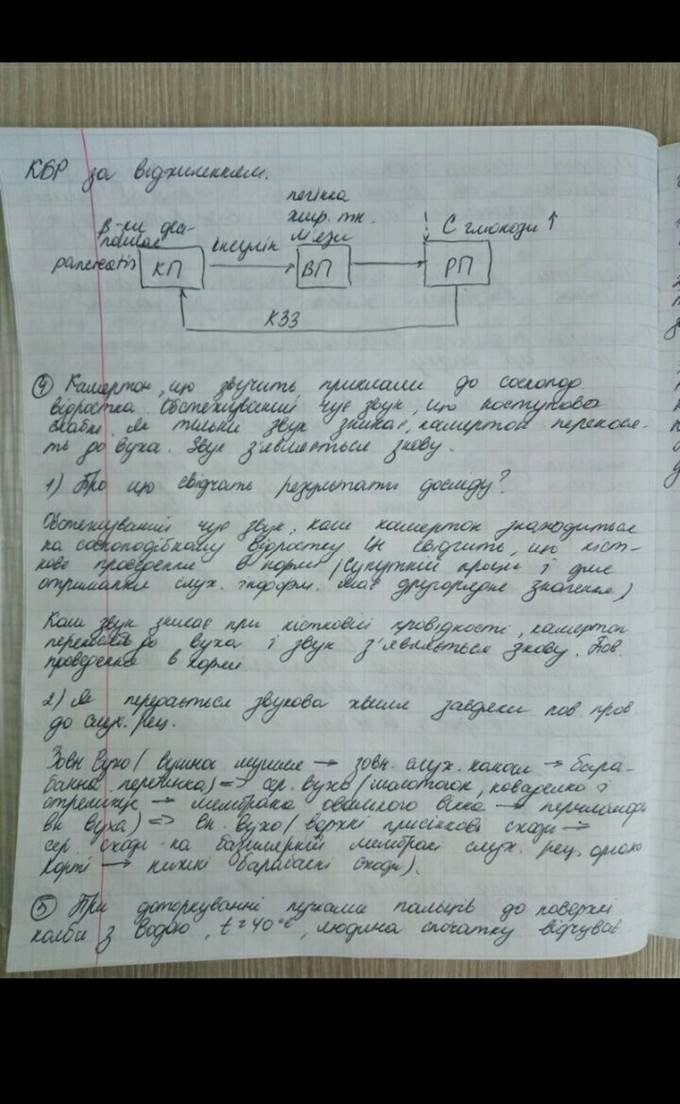 КБР за відхиленням.
печінка
жир. тк.
β-ки
м'язи
С глюкози ↑
інсулін
pancreatis
КП
ВП
РП
КЗЗ
④ Камертон, що звучить приклали до соскопод.
відростка. Обстежуваний чує звук, що поступово
слабне. Як тільки звук зникає, камертон перенося-
ть до вуха. Звук з'являється знову.
1) Про що свідчать результати досліду?
Обстежуваний чує звук, коли камертон знаходиться
на соскоподібному відростку. Це свідчить, що кіст-
кове проведення в нормі (супутній процес і для
отримання слух. інформ. має другорядне значення)
Коли звук зникає при кістковій провідності, камертон
переносять до вуха і звук з'являється знову. Пов.
проведення в нормі
2) Як передається звукова хвиля завдяки пов пров.
до слух. рец.
Зовн вухо (вушна мушля → зовн. слух. канал → бара-
банна перетинка) => сер. вухо (молоточок, коваделко і
стремінце → мембрана овального вікна → перилімфа
вн вуха) => вн. вухо (верхні присінкові сходи →
сер. сходи на базилярній мембрані слух. рец. органа
Корті → нижні барабанні сходи).
⑤ При доторкуванні пучками пальців до поверхні
колби з водою, t = 40°C, людина спочатку відчуває